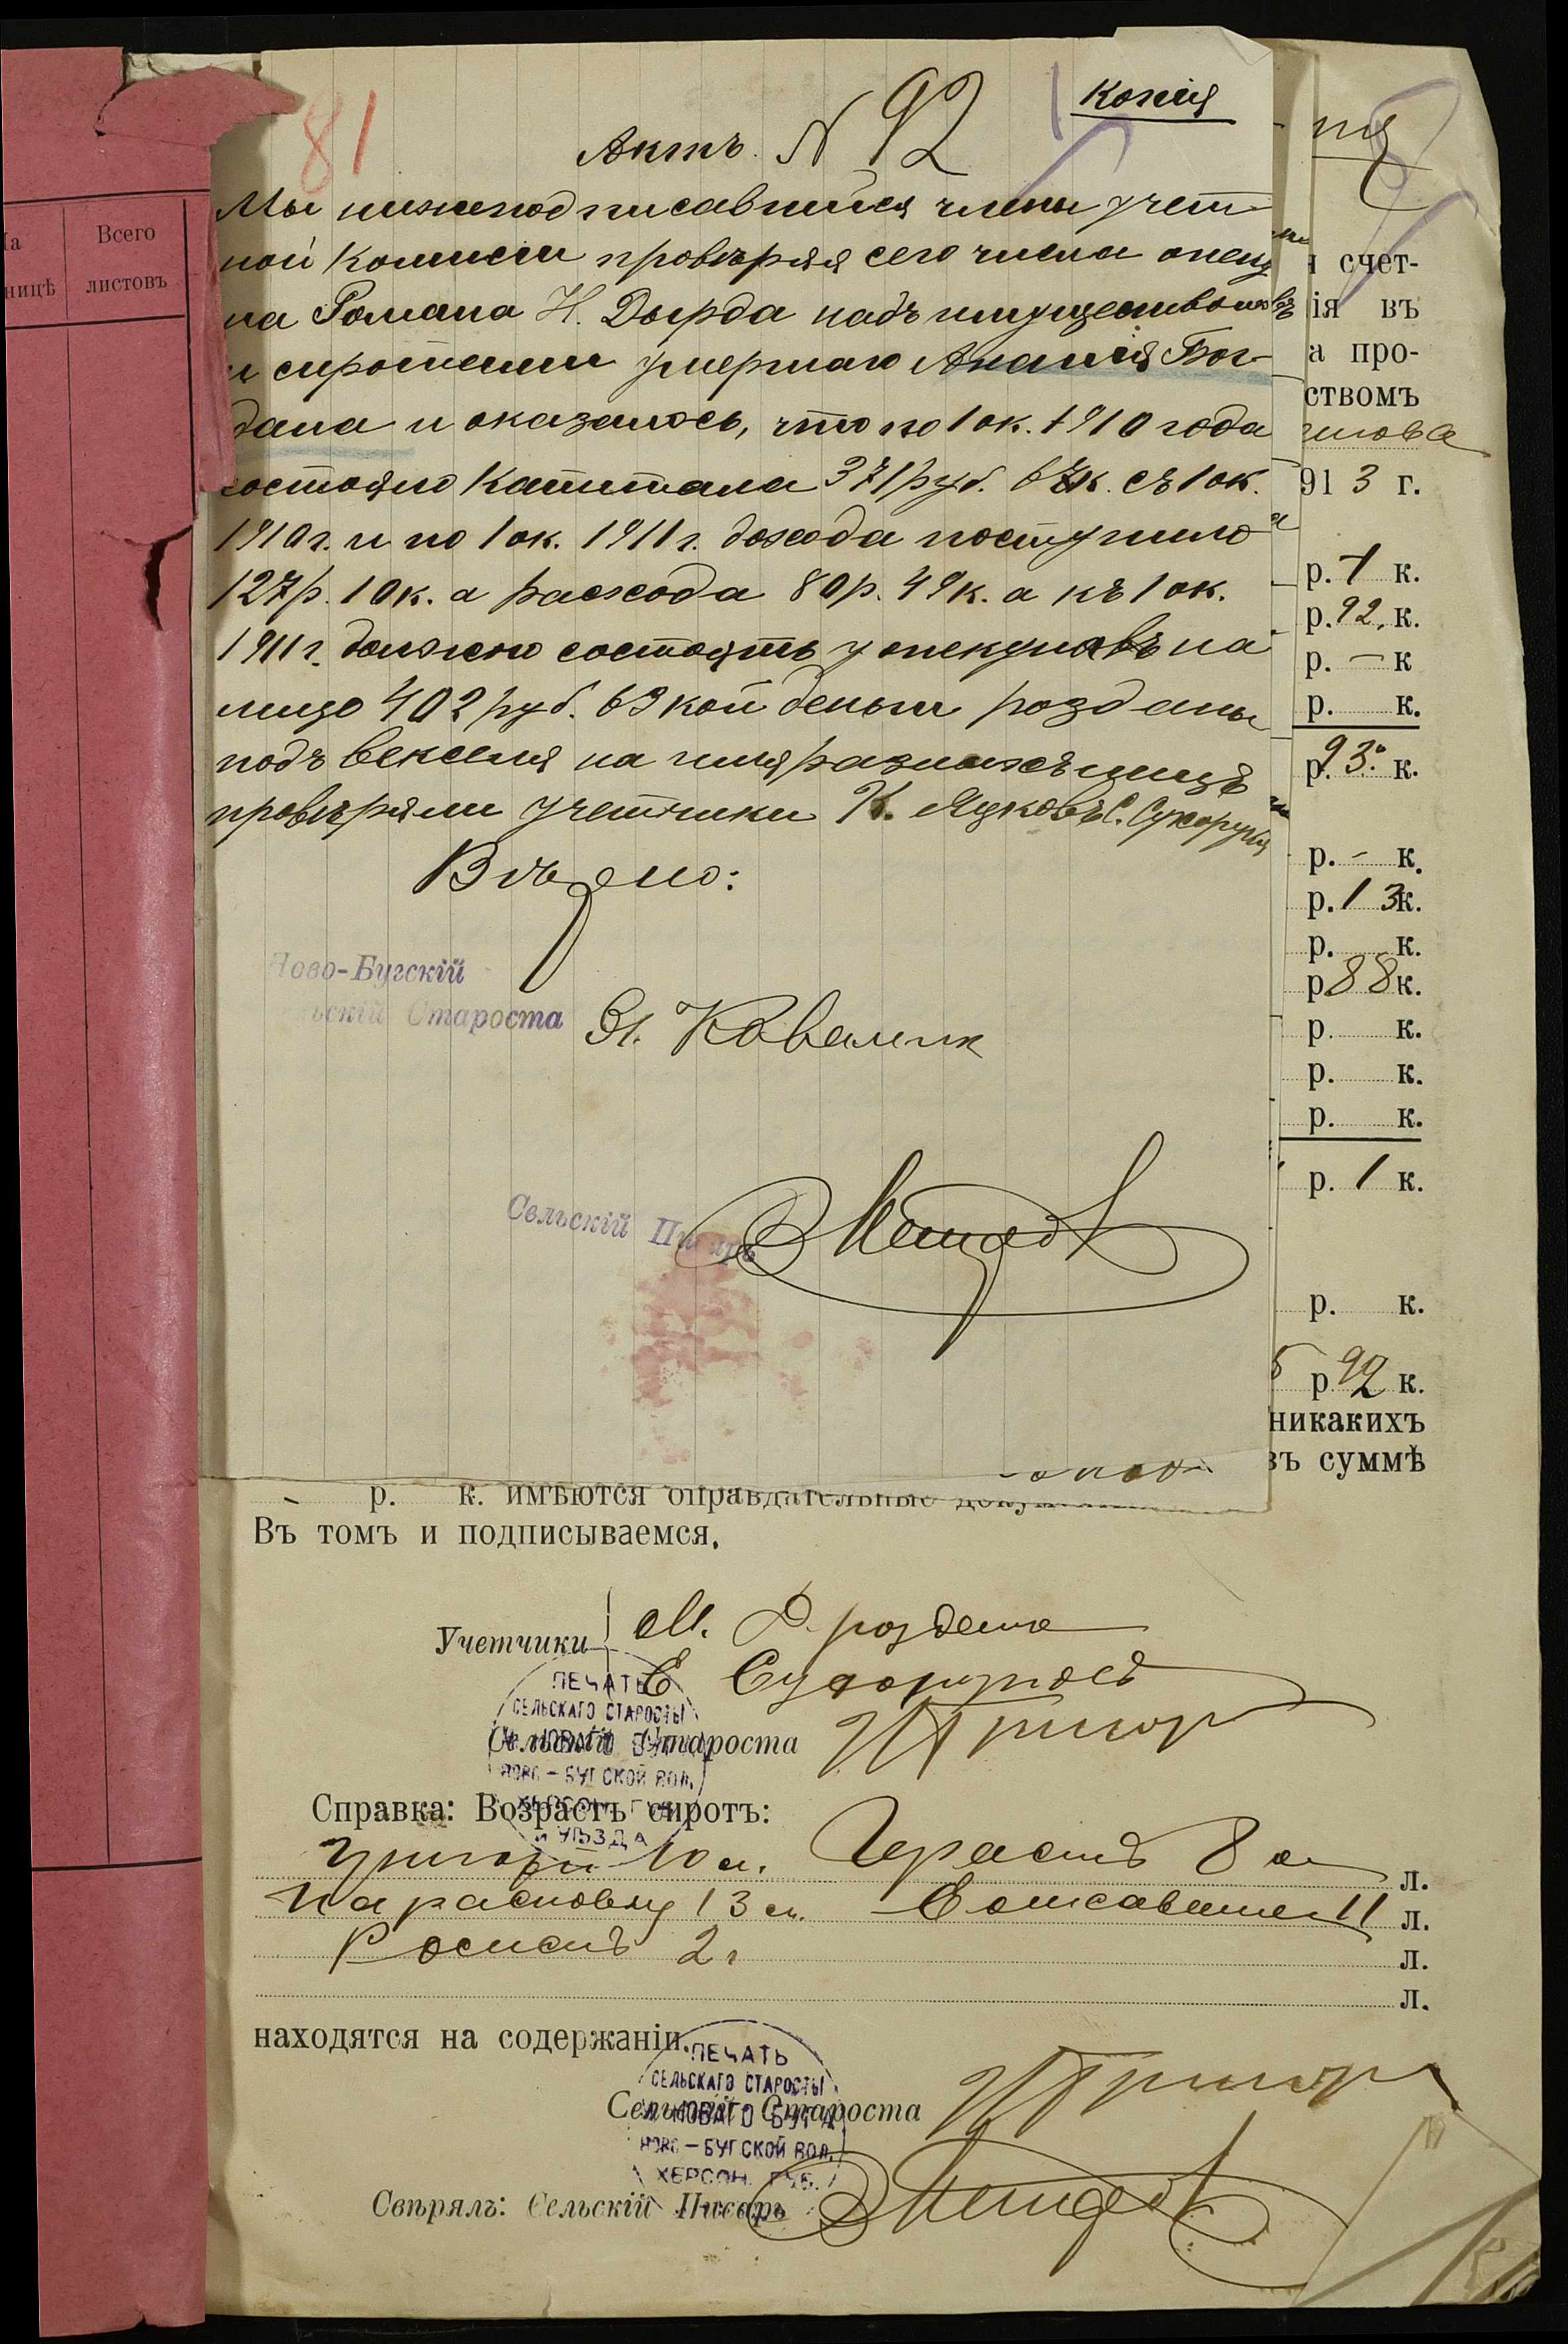 На
Всего
ницѣ
листовъ
81
Копия
Актъ N 92
Мы нижеподписавшиеся члены учет
ной комисiи провѣряя сего числа опеку
на Романа Н. Дырда надъ имуществомъ
и сиротами умершаго Ананiя Бог-
дана и оказалось, что по 1 ок. 1910 года
состояло капитала 371 руб. к. съ 1 ок.
1910 г. и по 1 ок. 1911 г. дохода поступило
127 р. 10 к. а расхода 80 р. 49 к. а къ 1 ок.
1911 г. должно состоять у опекуновъ на
лицо 402 руб. 63 коп деньги розданы
подъ векселя на имя разныхъ лицъ
провѣряли учетчики К. Яцковъ С. Сухорук
Вѣрно:
Ново-Бугскій
льскій Староста Коваленк
Сельскій Писарь
ія
счет-
ія въ
а про-
ствомъ
913 г.
р. 1 к.
р. 92 к.
р. — к
р. к.
р. 93 к.
р. - к.
р. 13 к.
р. к.
р 88 к.
р. к.
р. к.
р. к.
р. 1 к.
р. к.
р 92 к.
никакихъ
въ суммѣ
р. к. имѣются оправдательные
Въ томъ и подписываемся.
Учетчики М. Дрозденко
С Сухоруковъ
Сельскій Староста
ПЕЧАТЬ
СЕЛЬСКАГО СТАРОСТЫ
НОВАГО БУГА
НОВО-БУГСКОЙ ВОЛ.
ХЕРСОН. ГУБ.
И УѢЗДА
Справка: Возрастъ сиротъ:
Григорій 10 л. Герасимъ 8 л.
13 л. 11 л.
2 г л.
л.
находятся на содержаніи.
ПЕЧАТЬ
СЕЛЬСКАГО СТАРОСТЫ
НОВАГО БУГА
НОВО-БУГСКОЙ ВОЛ.
ХЕРСОН. ГУБ.
Сельскій Староста
Свѣрялъ: Сельскій Писарь